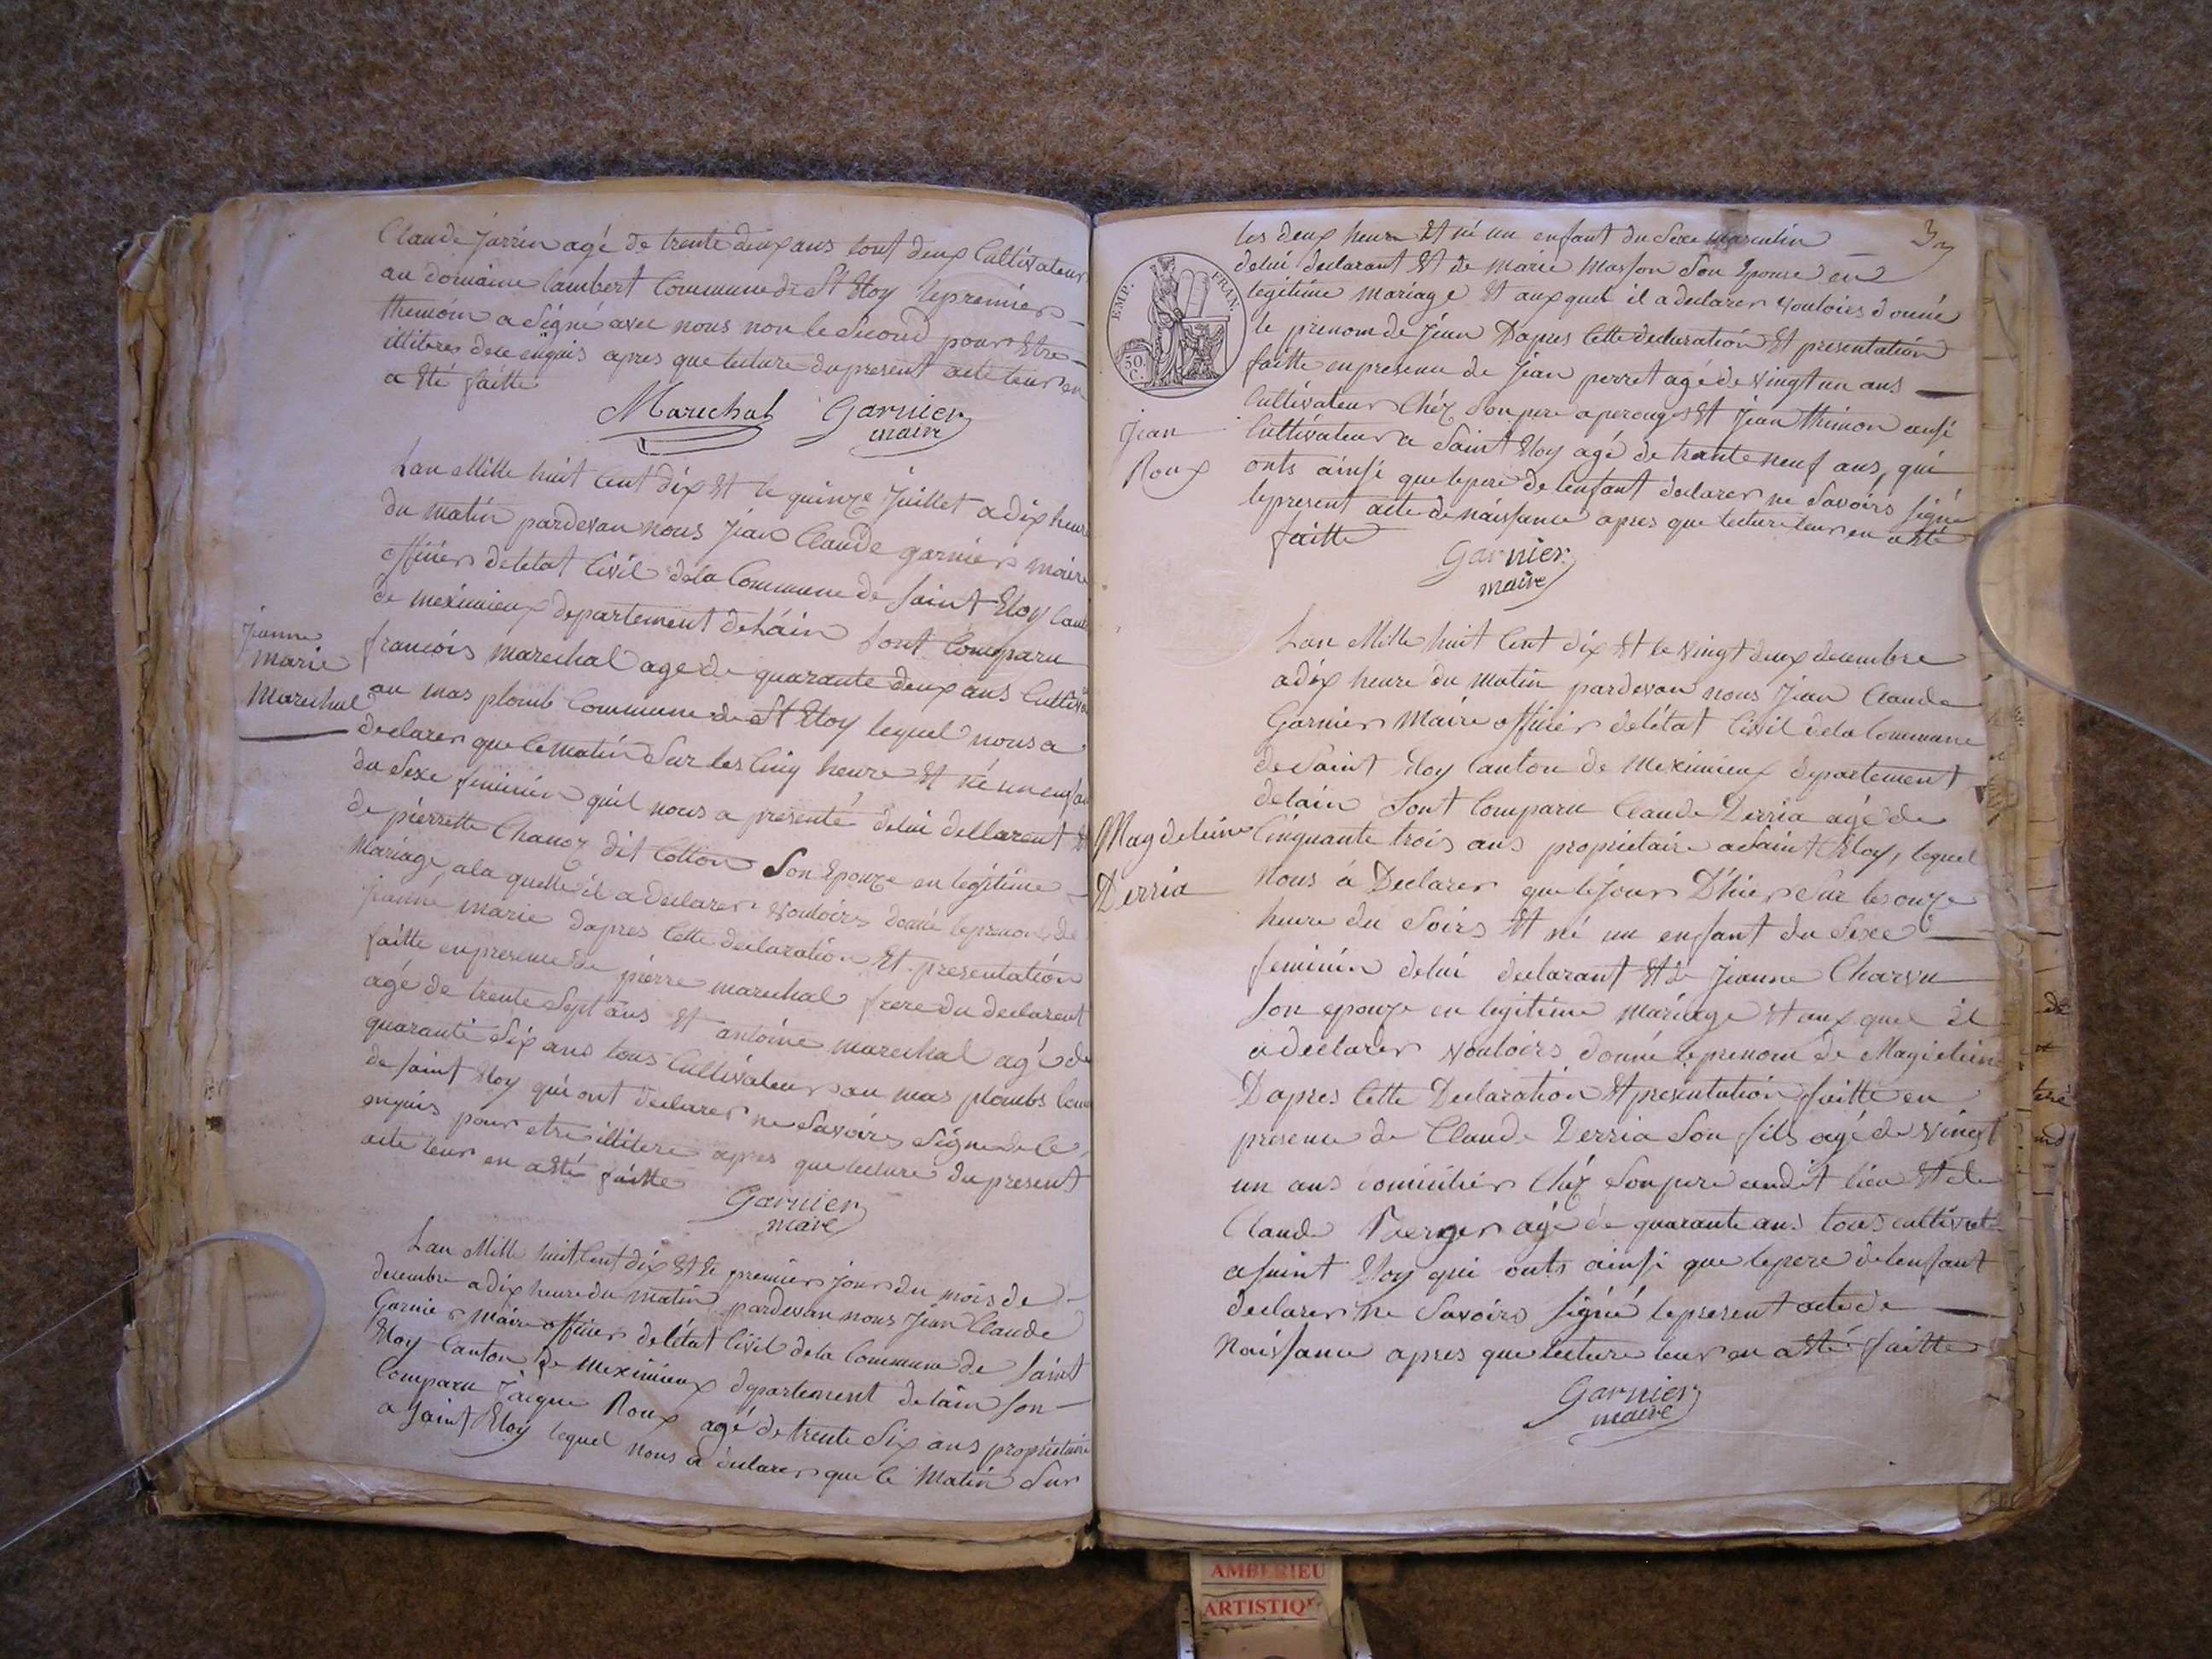 Claude Jarrin agé de trente deux ans tout deux Cultivateur
au domaine lambert Commune de St Eloy le premier
themoin a Signé avec nous non le Second pour Etre
illitere de ce enquis apres que lecture du present acte leur en
a Eté faitte
Marechal Garnier
maire
Lan Mille huit Cent dix Et le quinze Juillet a dix heure
du matin pardevan nous Jean Claude garnier maire
officier deletat Civil dela Commune de Saint Eloy Can
de meximieux departement delain Sont Comparu
francois marechal age de quarante deux ans Cultiva
au mas plomb Commune de St Eloy lequel nous a
declarer que Cematin Sur les Cinq heure Et né un enfan
du Sexe feminin quil nous a presenté delui declarent Et
de pierrette Chanoz dit Cotton Son Epouze en legitime
Mariage, ala quelle il a Declarer Vouloirs donné leprenom de
jeanne marie dapres Cette declaration Et presentation
faitte enpresence de pierre marechal frere du declarent
agé de trente Sept ans Et antoine marechal agé de
quarante Six ans tous Cultivateurs au mas plombs Com
de Saint Eloy qui ont declarer ne Savoirs Signe de Ce
enquis pour etre illitere apres que lecture du present
acte leur en a Eté faitte
Garnier
maire
Jeanne
marie
Marechal
Lan Mille huit Cent dix Et le premier jour du mois de
decembre a dix heure du matin pardevan nous Jean Claude
Garnier Maire officier delétat Civil dela Commune de Saint
Eloy Canton de Meximieux departement delain Son
Comparu Jacque Roux agé de trente Six ans propriétaire
a Saint Eloy lequel nous a declarer que Ce Matin Sur
3
les deux heure Et né un enfant du Sexe masculin
delui declarant Et de marie Masson Son Epouse en
legitime mariage Et auxquel il a declarer Vouloirs donné
le prenom de Jean Dapres Cette declaration Et presentation
faitte enpresence de Jean perret agé de Vingt un ans
Cultivateur Chéz Son pere a perouges Et Jean thimon aussi
Cultivateur a Saint Eloy agé de trante neuf ans, qui
onts ainsi que lepere de lenfant declarer ne Savoirs Signé
lepresent acte de naissance apres que lecture leur en a Eté
faitte
Garnier
maire
EMP. FRAN.
50
C.
Jean
Roux
Lan Mille huit Cent dix Et le Vingt deux decembre
a dix heure du matin pardevan nous Jean Claude
Garnier Maire officier delétat Civil dela Commune
de Saint Eloy Canton de Meximieux departement
delain Sont Comparu Claude Derria agé de
Cinquante trois ans proprietaire a Saint Eloy, lequel
Nous à Declarer que le Jour D'hier Sur les onze
heure du Soirs Et né un enfant du Sexe
feminin delui declarant Et de Jeanne Charvu
Son epouze en legitime mariage Et auxquel il
a declarer Vouloirs donné leprenom de Magdeleine
Dapres Cette Declaration Et presentation faitte en
presence de Claude Derria Son fils agé de Vingt
un ans domicilier Chéz Sonpere audit lieu Et de
Claude agé de quarante ans tous cultivat
a Saint Eloy qui onts ainsi que lepere delenfant
declarer ne Savoirs Signé lepresent acte de
Naissance apres que lecture leur en a Eté faitte
Garnier
maire
Magdeleine
Derria
AMBERIEU
ARTISTIQ